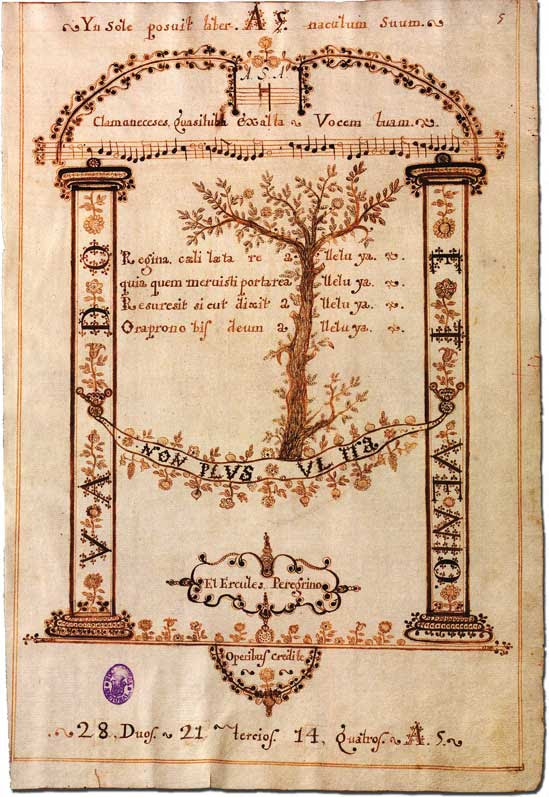 Yn Sole posuit taber. A 5. naculum Suum.
5
A. S. A
Clamaneceses, quasituba exalta Vocem tuam.
VADO
ET VENIO
Regina. cæli læta re a lleluya.
quia quem meruisti portare a lleluya.
Resuresit si cut dixit a lleluya.
Ora pro no bis deum a lleluya.
NON PLUS VLtra
El Ercules. Peregrino
Operibus credite
28. Duos. 21 tercios. 14. quatros. A. 5.